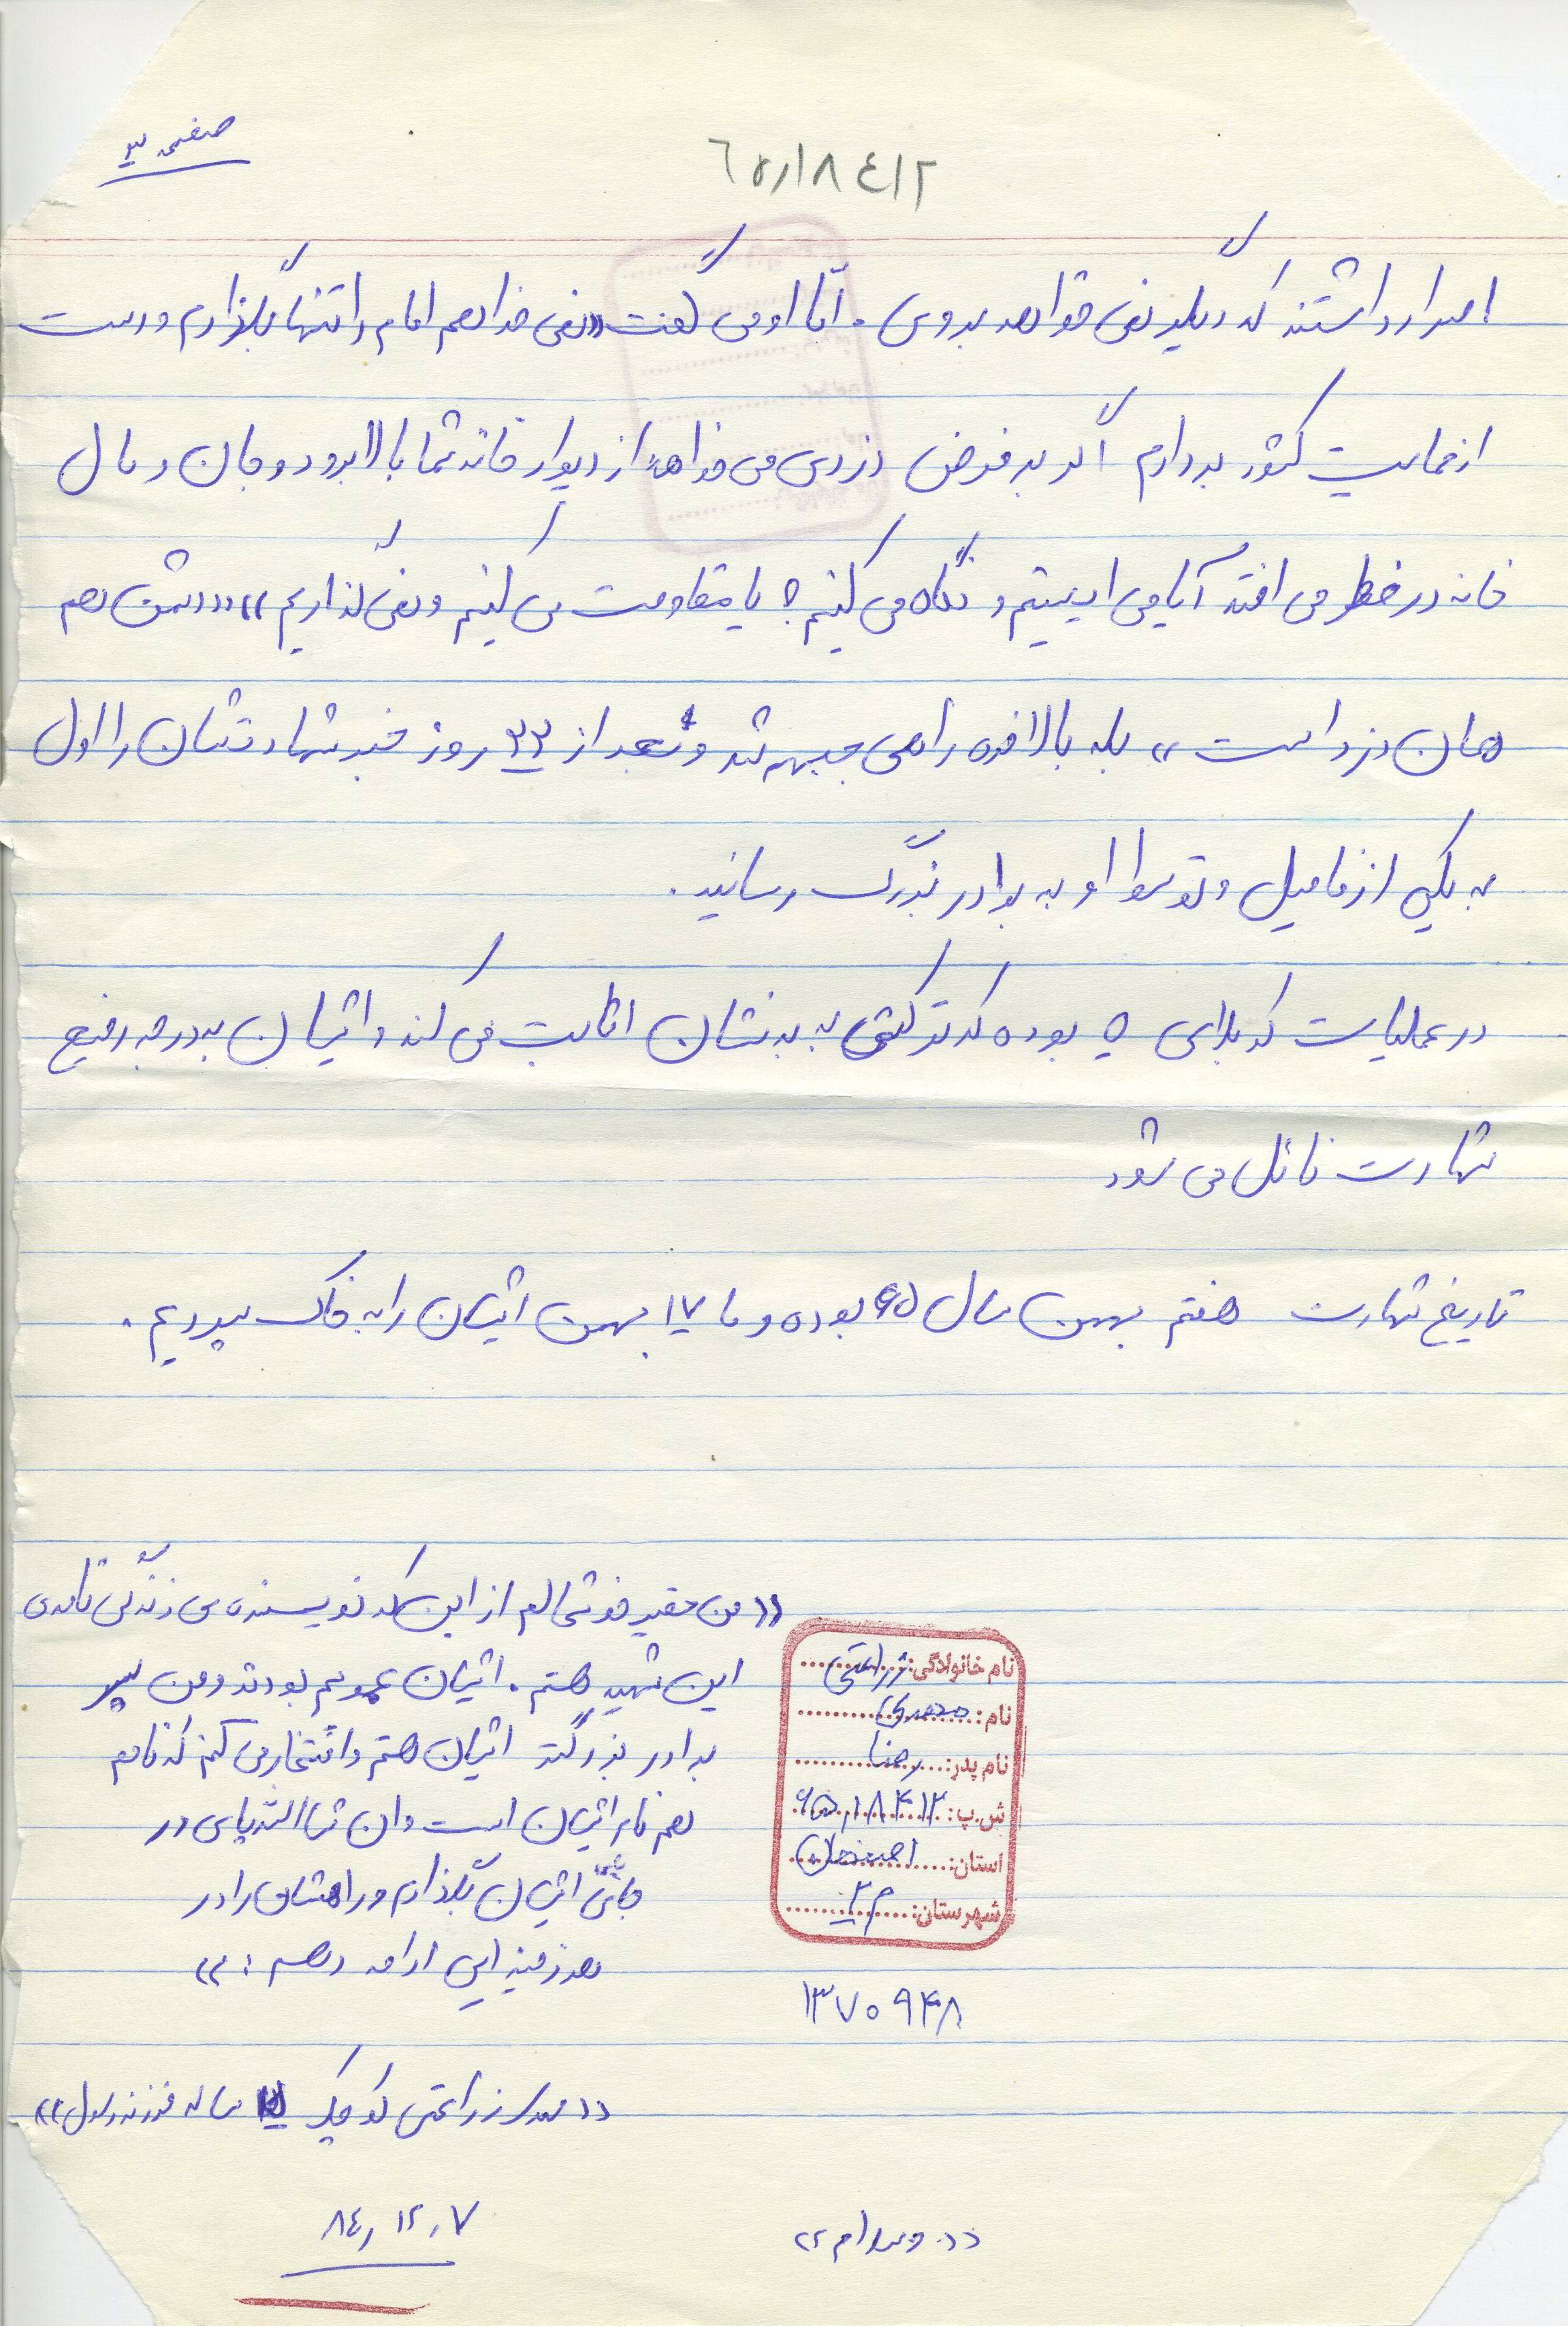 صفحه ۳
٦٥/١٨٤١٢
اصرار داشتند که دیگر نمی خواهد بروی. اما او می گفت «نمی خواهم امام را تنها بگذارم و دست
از حمایت کشور بردارم اگر به فرض دزدی می خواهد از دیوار خانه شما بالا برود و جان و مال
خانه در خطر می افتد آیا می ایستیم و نگاه می کنیم؟ یا مقاومت می کنیم و نمی گذاریم» «دشمن هم
همان دزد است» بله بالاخره راهی جبهه شد و بعد از ۳۳ روز خبر شهادتشان را اول
به یکی از فامیل و توسط او به برادر بزرگ رسانید.
در عملیات کربلای ۵ بوده که ترکشی به بدنشان اثابت می کند و ایشان به درجه رفیع
شهادت نائل می شود
تاریخ شهادت هفتم بهمن سال ۶۵ بوده و ما ۱۷ بهمن ایشان را به خاک سپردیم.
«من حقیر خوشحالم از این که نویسنده ی زندگی نامه ی
این شهید هستم. ایشان عمویم بودند و من پسر
برادر بزرگتر ایشان هستم و افتخار می کنم که نامم
هم نام ایشان است و ان شاالله پای در
جای پای ایشان بگذارم و راهشان را در
هر زمینه ایی ادامه دهم.»
نام خانوادگی: زراعتی
نام: مهدی
نام پدر: رضا
ش.پ: ۶۵/۱۸۴۱۲
استان: اصفهان
شهرستان: م ۲
۱۳۷۰۹۴۸
«مهدی زراعتی کوچک ۱۵ ساله فرزند رسول»
«. وسلام»
٨٤/١٢/٧